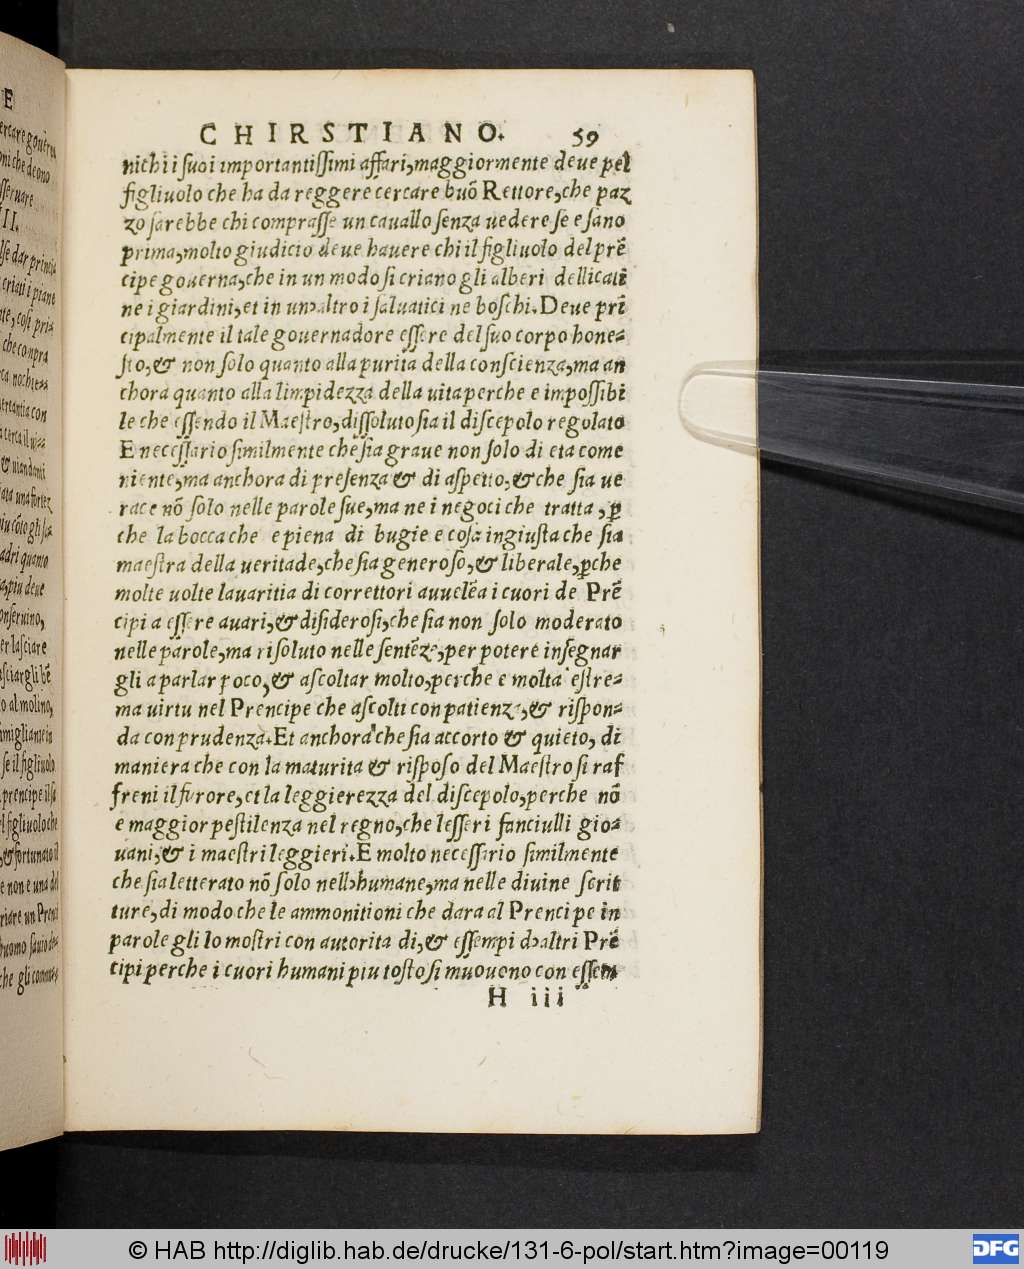 CHIRSTIANO. 59
nichi i suoi importantissimi affari, maggiormente deue pel
figliuolo che ha da reggere cercare buõ Rettore, che paz
zo sarebbe chi comprasse un cauallo senza uedere se e sano
prima, molto giudicio deue hauere chi il figliuolo del prẽ
cipe gouerna, che in un modo si criano gli alberi dellicati
ne i giardini, et in unɔaltro i saluatici ne boschi. Deue prĩ
cipalmente il tale gouernadore essere del suo corpo hone=
sto, & non solo quanto alla purita della conscienza, ma an
chora quanto alla limpidezza della uita perche e impossibi
le che essendo il Maestro, dissoluto sia il discepolo regolato
E necessario similmente che sia graue non solo di eta come
niente, ma anchora di presenza & di aspetto, & che sia ue
race nõ solo nelle parole sue, ma ne i negoci che tratta, ꝑ
che la bocca che e piena di bugie e cosa ingiusta che sia
maestra della ueritade, che sia generoso, & liberale, ꝑche
molte uolte lauaritia di correttori auuelẽa i cuori de Prẽ
cipi a essere auari, & disiderosi, che sia non solo moderato
nelle parole, ma risoluto nelle sentẽze, per potere insegnar
gli a parlar poco, & ascoltar molto, perche e molta estre=
ma uirtu nel Prencipe che ascolti con patienza, & rispon=
da con prudenza. Et anchora che sia accorto & quieto, di
maniera che con la maturita & risposo del Maestro si raf
freni il furore, et la leggierezza del discepolo, perche nõ
e maggior pestilenza nel regno, che lesseri fanciulli gio=
uani, & i maestri leggieri. E molto necessario similmente
che sia letterato nõ solo nellɔhumane, ma nelle diuine scrit
ture, di modo che le ammonitioni che dara al Prencipe in
parole gli lo mostri con autorita di, & essempi dɔaltri Prẽ
cipi perche i cuori humani piu tosto si muoueno con essem
H iii
© HAB http://diglib.hab.de/drucke/131-6-pol/start.htm?image=00119
DFG